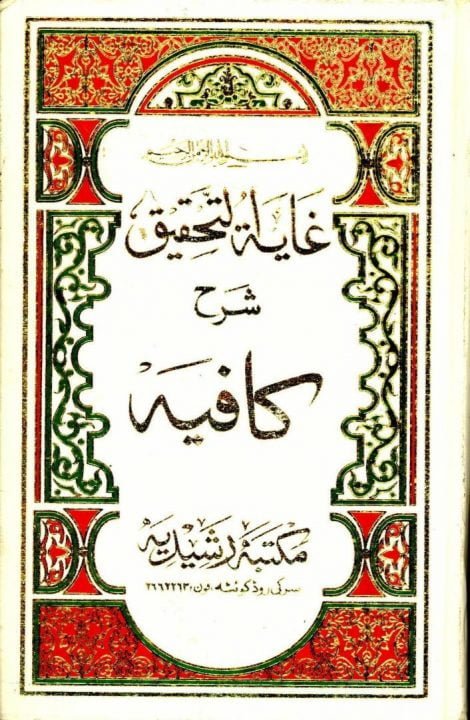 بسم اللہ الرحمن الرحیم
غاية التحقيق
شرح
كافيه
مکتبہ رشیدیہ
سرکی روڈ کوئٹہ، فون: ۲۶۶۲۲۶۳